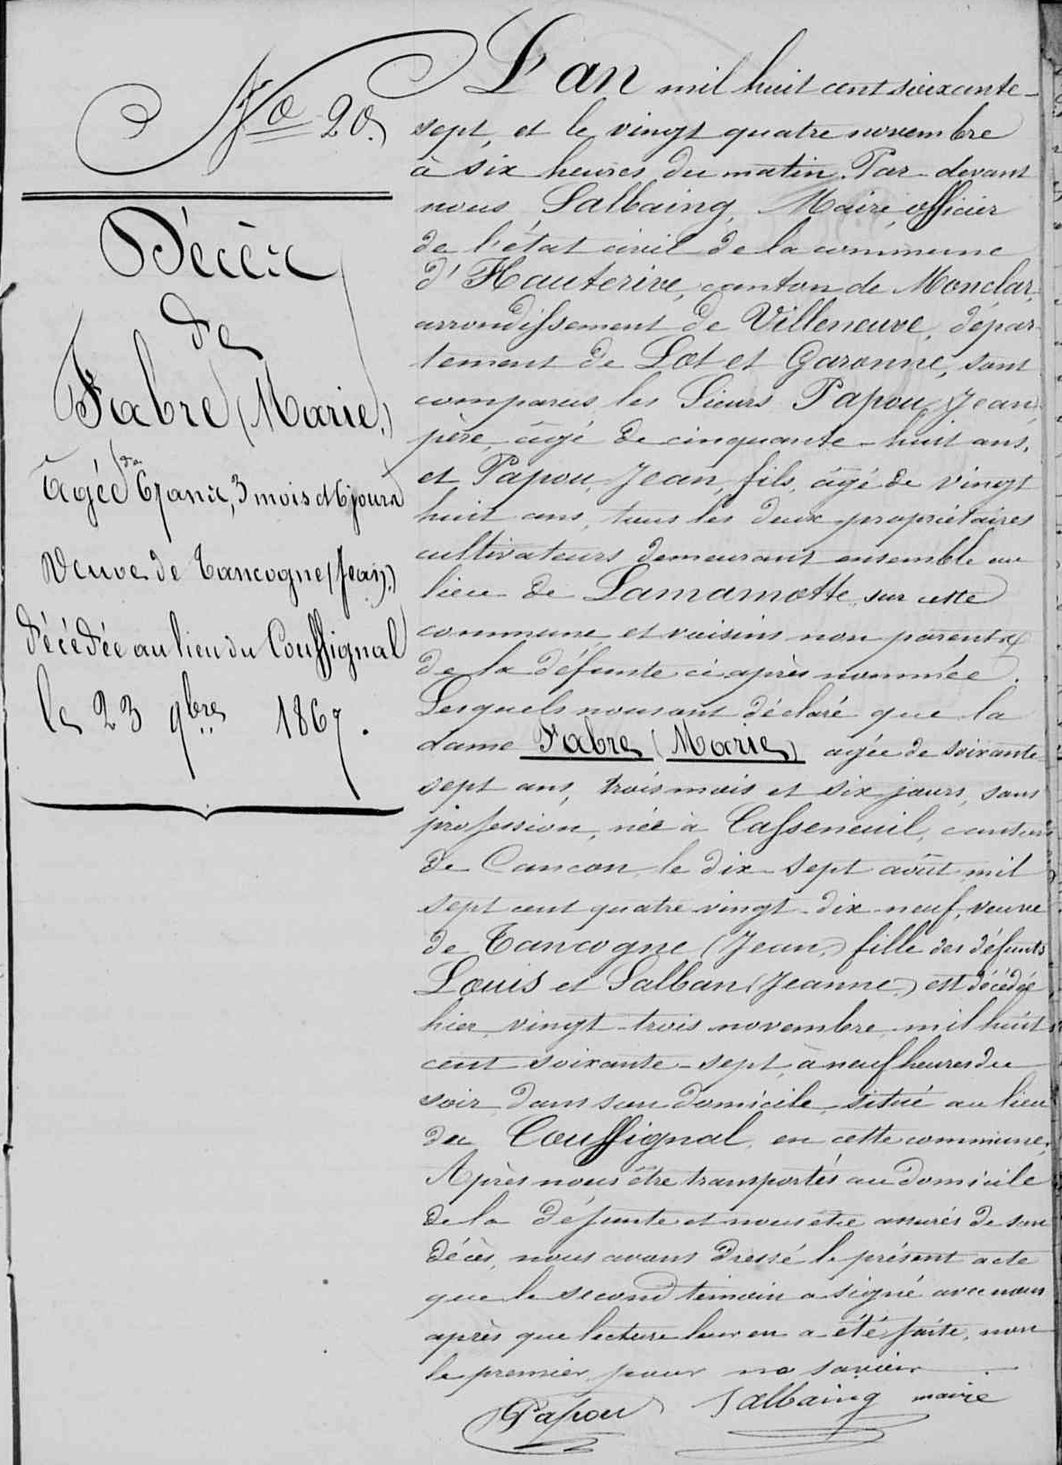 No 20.
Décès
de
Fabre (Marie,)
Agée de 67 ans, 3 mois et 6 jours
Veuve de Tancogne (Jean,)
décédée au lieu du Couffignal
le 23 9bre 1867.
L'an mil huit cent soixante-
sept, et le vingt quatre novembre
à six heures du matin. Par-devant
nous Salbaing, Maire, officier
de l'état civil de la commune
d'Hauterive, canton de Monclar,
arrondissement de Villeneuve, dépar-
tement de Lot et Garonne, sont
comparus les Sieurs Papou, Jean,
père, âgé de cinquante-huit ans,
et Papou, Jean, fils, âgé de vingt
huit ans, tous les deux propriétaires
cultivateurs demeurant ensemble au
lieu de Lamamotte sur cette
commune et voisins non parents
de la défunte ci après nommée.
Lesquels nous ont déclaré que la
dame Fabre (Marie) agée de soixante-
sept ans, trois mois et six jours, sans
profession, née à Casseneuil, canton
de Cancon le dix-sept août mil
sept cent quatre vingt-dix-neuf, veuve
de Tancogne (Jean,) fille des défunts
Louis et Salban (Jeanne,) est décédée
hier vingt-trois novembre mil huit
cent soixante-sept à neuf heures du
soir dans son domicile situé au lieu
du Couffignal en cette commune.
Après nous être transportés au domicile
de la défunte et nous être assurés de son
décès, nous avons dressé le présent acte
que le second témoin a signé avec nous
après que lecture leur en a été faite, non
le premier pour ne savoir
Papou Salbaing maire